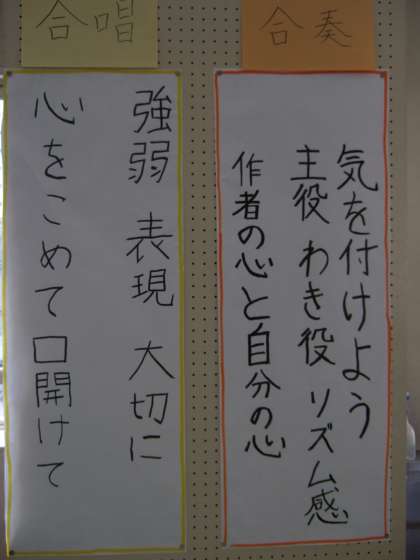 合奏
気を付けよう
主役 わき役 リズム感
作者の心と自分の心
合唱
強弱 表現 大切に
心をこめて口開けて